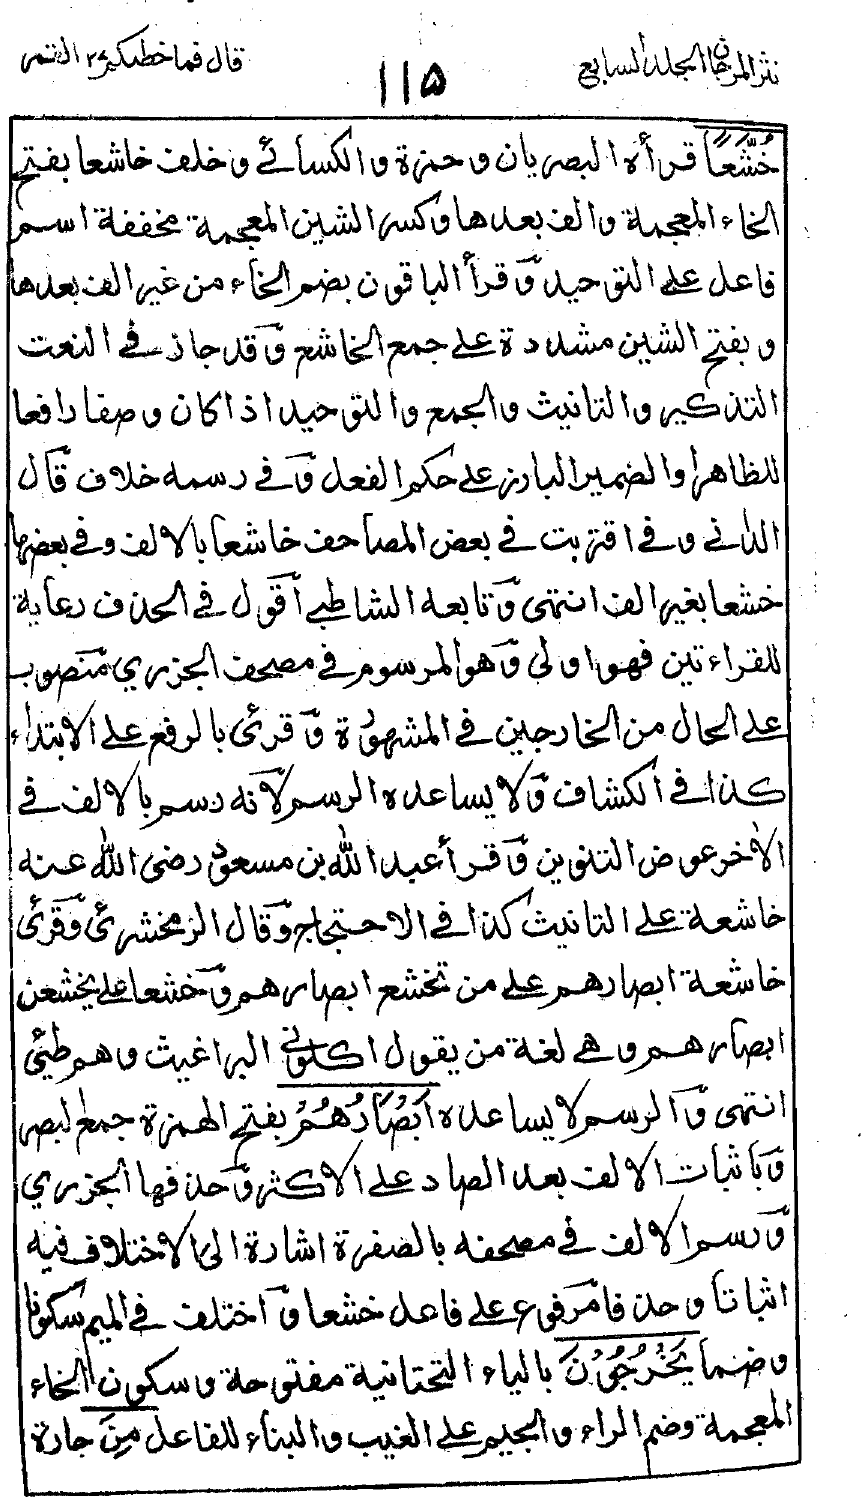 نثر المرجان المجلد السابع
١١٥
قال فما خطبكم ٢٧ القمر
خُشَّعًا قرأه البصريان وحمزة والكسائي وخلف خاشعا بفتح
الخاء المعجمة والف بعدها وكسر الشين المعجمة مخففة اسم
فاعل على التوحيد وقرأ الباقون بضم الخاء من غير الف بعدها
وبفتح الشين مشددة على جمع الخاشع وقد جاز في النعت
التذكير والتانيث والجمع والتوحيد اذا كان وصفا رافعا
للظاهر او الضمير البارز على حكم الفعل وفي رسمه خلاف قال
الداني وفي اقتربت في بعض المصاحف خاشعا بالالف وفي بعضها
خشعا بغير الف انتهى وتابعه الشاطبي اقول في الحذف رعاية
للقراءتين فهو اولى وهو المرسوم في مصحف الجزري منصوب
على الحال من الخارجين في المشهورة وقرئ بالرفع على الابتداء
كذا في الكشاف ولا يساعده الرسم لانه رسم بالالف في
الاخر عوض التنوين وقرأ عبد الله بن مسعود رضى الله عنه
خاشعة على التانيث كذا في الاحتجاج وقال الزمخشرئ وقرئ
خاشعة ابصارهم على من تخشع ابصارهم وخشعا على يخشعن
ابصارهم وهي لغة من يقول اكلوني البراغيث وهم طيئ
انتهى والرسم لا يساعده اَبْصَارُهُمْ بفتح الهمزة جمع البصر
وباثبات الالف بعد الصاد على الاكثر وحذفها الجزري
ورسم الالف في مصحفه بالصفرة اشارة الى الاختلاف فيه
اثباتا وحذفا مرفوع على فاعل خشعا واختلف في الميم سكونا
وضما يَخْرُجُوْنَ بالياء التحتانية مفتوحة وسكون الخاء
المعجمة وضم الراء والجيم على الغيب والبناء للفاعل مِنَ جارة